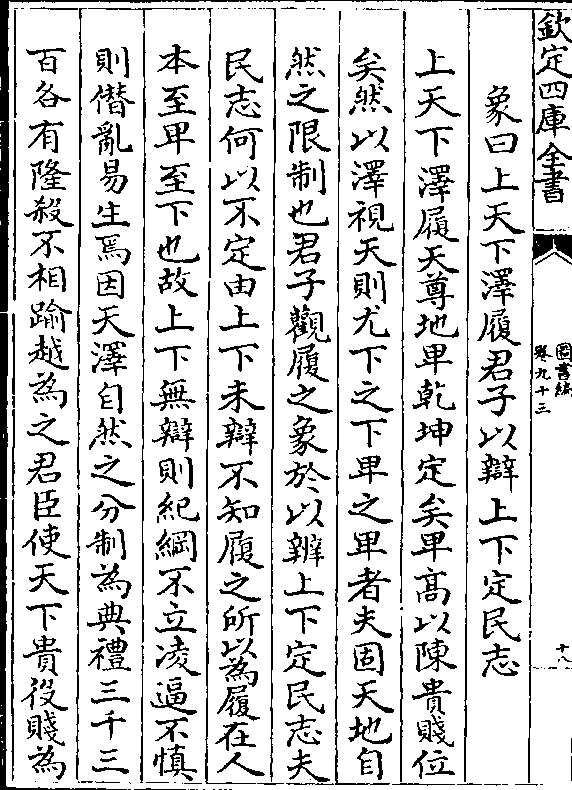 欽定四庫全書
圖書編
卷九十三
十八
象曰上天下澤履君子以辯上下定民志
上天下澤履天尊地卑乾坤定矣卑高以陳貴賤位
矣然以澤視天則尤下之下卑之卑者夫固天地自
然之限制也君子觀履之象於以辨上下定民志夫
民志何以不定由上下未辯不知履之所以為履在人
本至卑至下也故上下無辯則紀綱不立凌逼不慎
則僭亂易生焉因天澤自然之分制為典禮三千三
百各有隆殺不相踰越為之君臣使天下貴役賤為